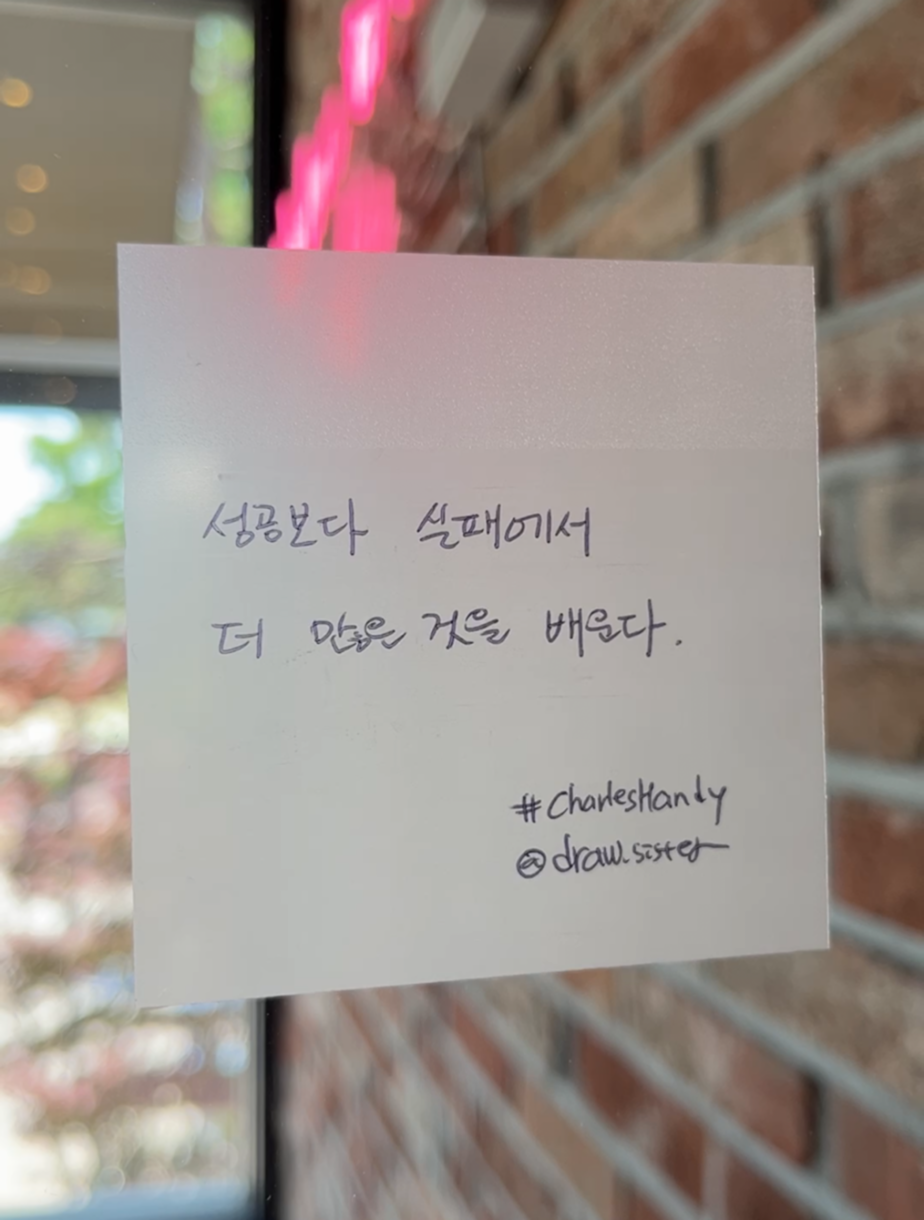 성공보다 실패에서
더 많은 것을 배운다.
#CharlesHandy
@draw.sister